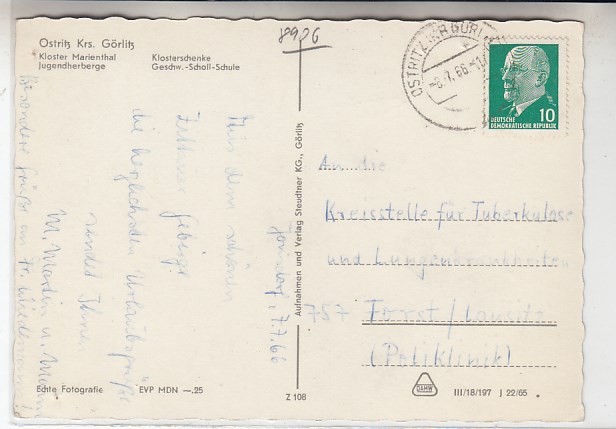 8926
Ostritz Krs. Görlitz
Kloster Marienthal Klosterschenke
Jugendherberge Geschw.-Scholl-Schule
OSTRITZ (KR GÖRLITZ)
-8.7.66-
DEUTSCHE
DEMOKRATISCHE REPUBLIK
10
Jonsdorf, 7.7.66
Aus dem schönen
Zittauer Gebirge
die herzlichsten Urlaubsgrüße
sendet Ihnen
M. Martin u.
Besonders Grüße an Fr.
Aufnahmen und Verlag Steudtner KG., Görlitz
An die
Kreisstelle für Tuberkulose
und Lungenkrankheiten
757 Forst/Lausitz
(Poliklinik)
Echte Fotografie EVP MDN —.25
Z 108
DEWAG
III/18/197 J 22/65